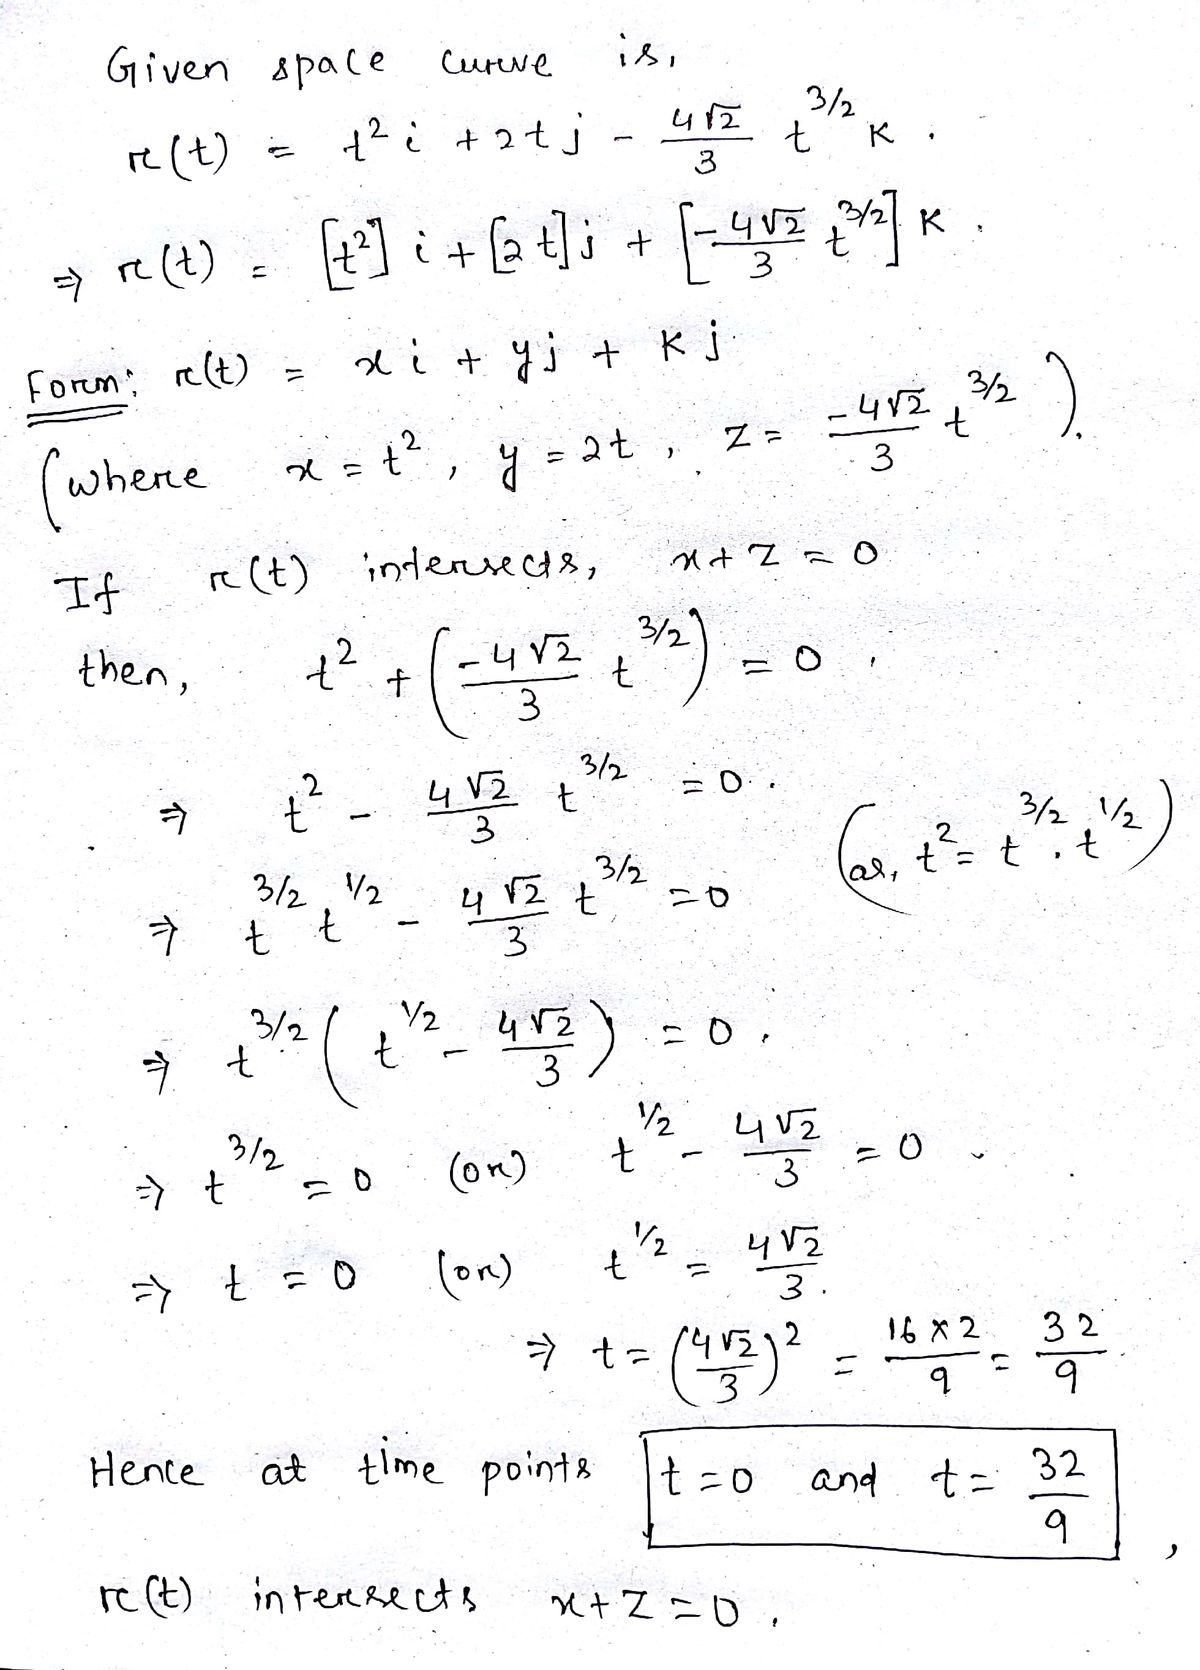 Given space curve is,
r(t) = t² i + 2t j - 4√2/3 t^3/2 K .
⇒ r(t) = [t²] i + [2t] j + [-4√2/3 t^3/2] K .
Form: r(t) = x i + y j + K j
(where x = t² , y = 2t , z = -4√2/3 t^3/2 ).
If r(t) intersects, x + z = 0
then, t² + (-4√2/3 t^3/2) = 0 .
⇒ t² - 4√2/3 t^3/2 = 0 .
(as, t² = t^3/2 . t^1/2)
⇒ t^3/2 t^1/2 - 4√2/3 t^3/2 = 0
⇒ t^3/2 ( t^1/2 - 4√2/3 ) = 0 .
⇒ t^3/2 = 0 (or) t^1/2 - 4√2/3 = 0 .
⇒ t = 0 (or) t^1/2 = 4√2/3 .
⇒ t = (4√2/3)² = 16 × 2/9 = 32/9 .
Hence at time points t = 0 and t = 32/9 ,
r(t) intersects x + z = 0 .